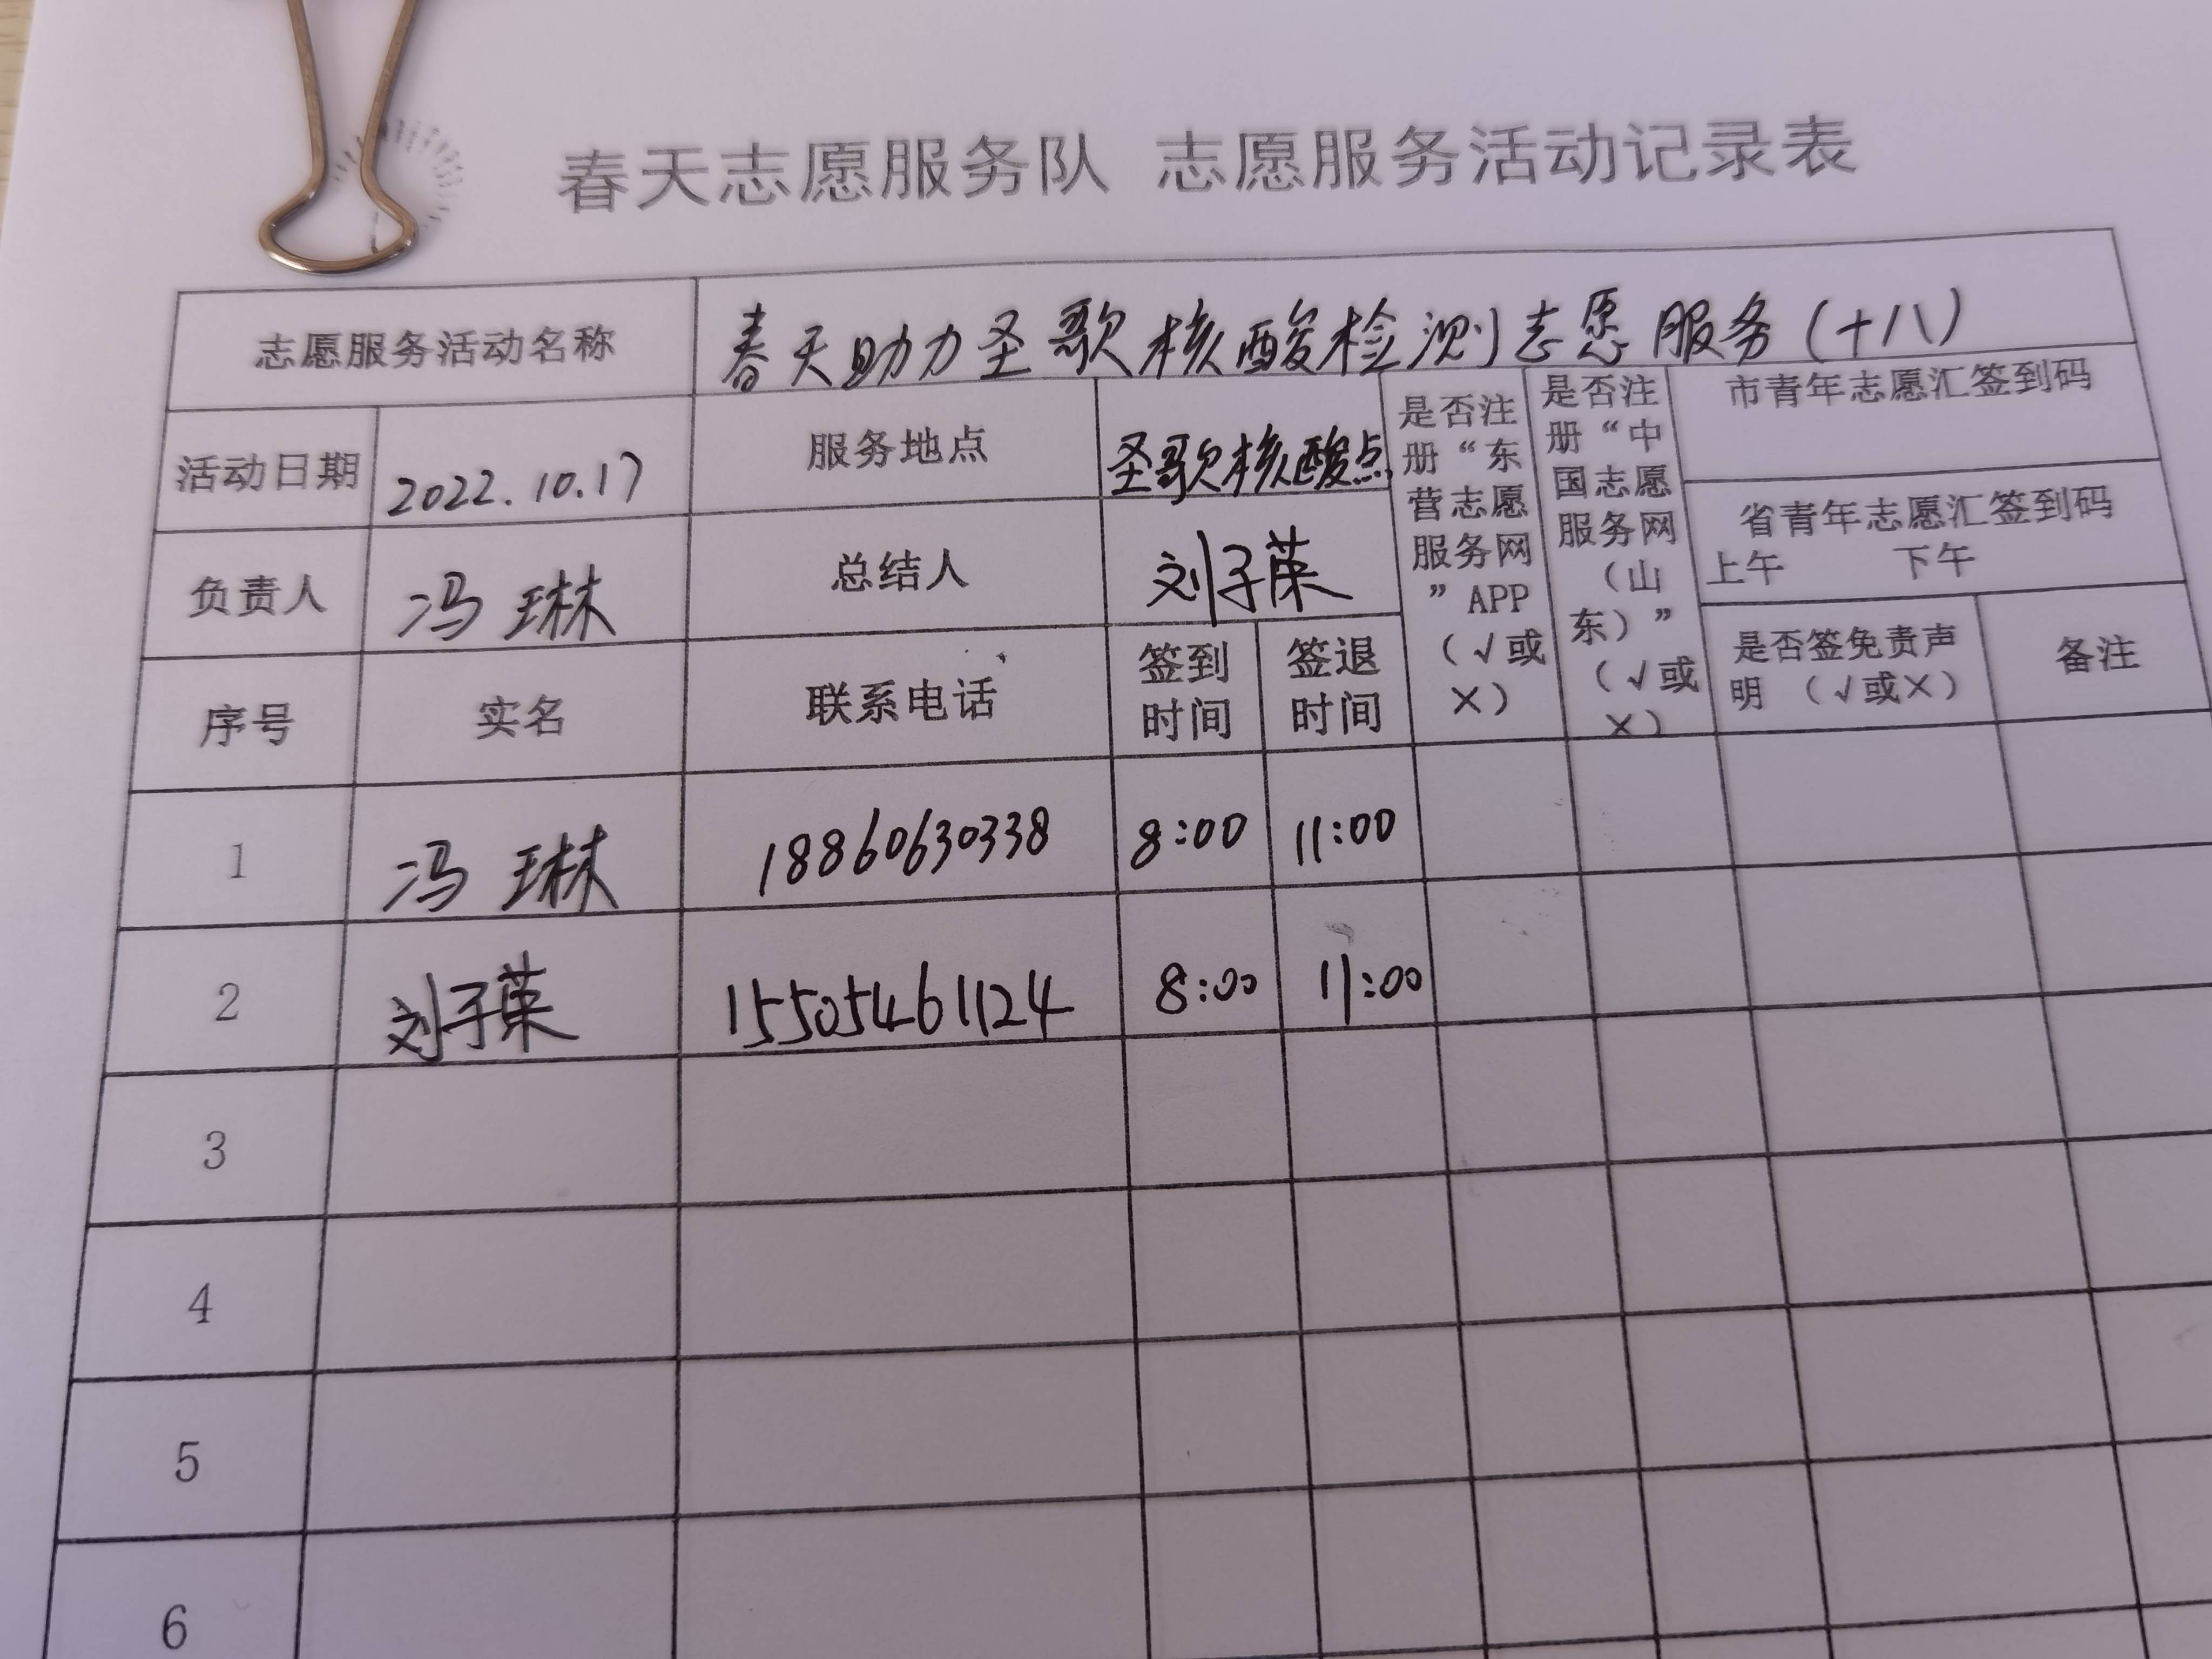 春天志愿服务队 志愿服务活动记录表
志愿服务活动名称 春天助力圣歌核酸检测志愿服务(十八)
活动日期 2022.10.17 服务地点 圣歌核酸点
负责人 冯琳 总结人 刘子荣
是否注
册“东
营志愿
服务网
”APP
(√或
×)
是否注
册“中
国志愿
服务网
(山
东)”
(√或
×)
市青年志愿汇签到码
省青年志愿汇签到码
上午 下午
是否签免责声
明 (√或×)
备注
序号 实名 联系电话
签到
时间
签退
时间
1 冯琳 18860630338 8:00 11:00
2 刘子荣 15505461124 8:00 11:00
3
4
5
6